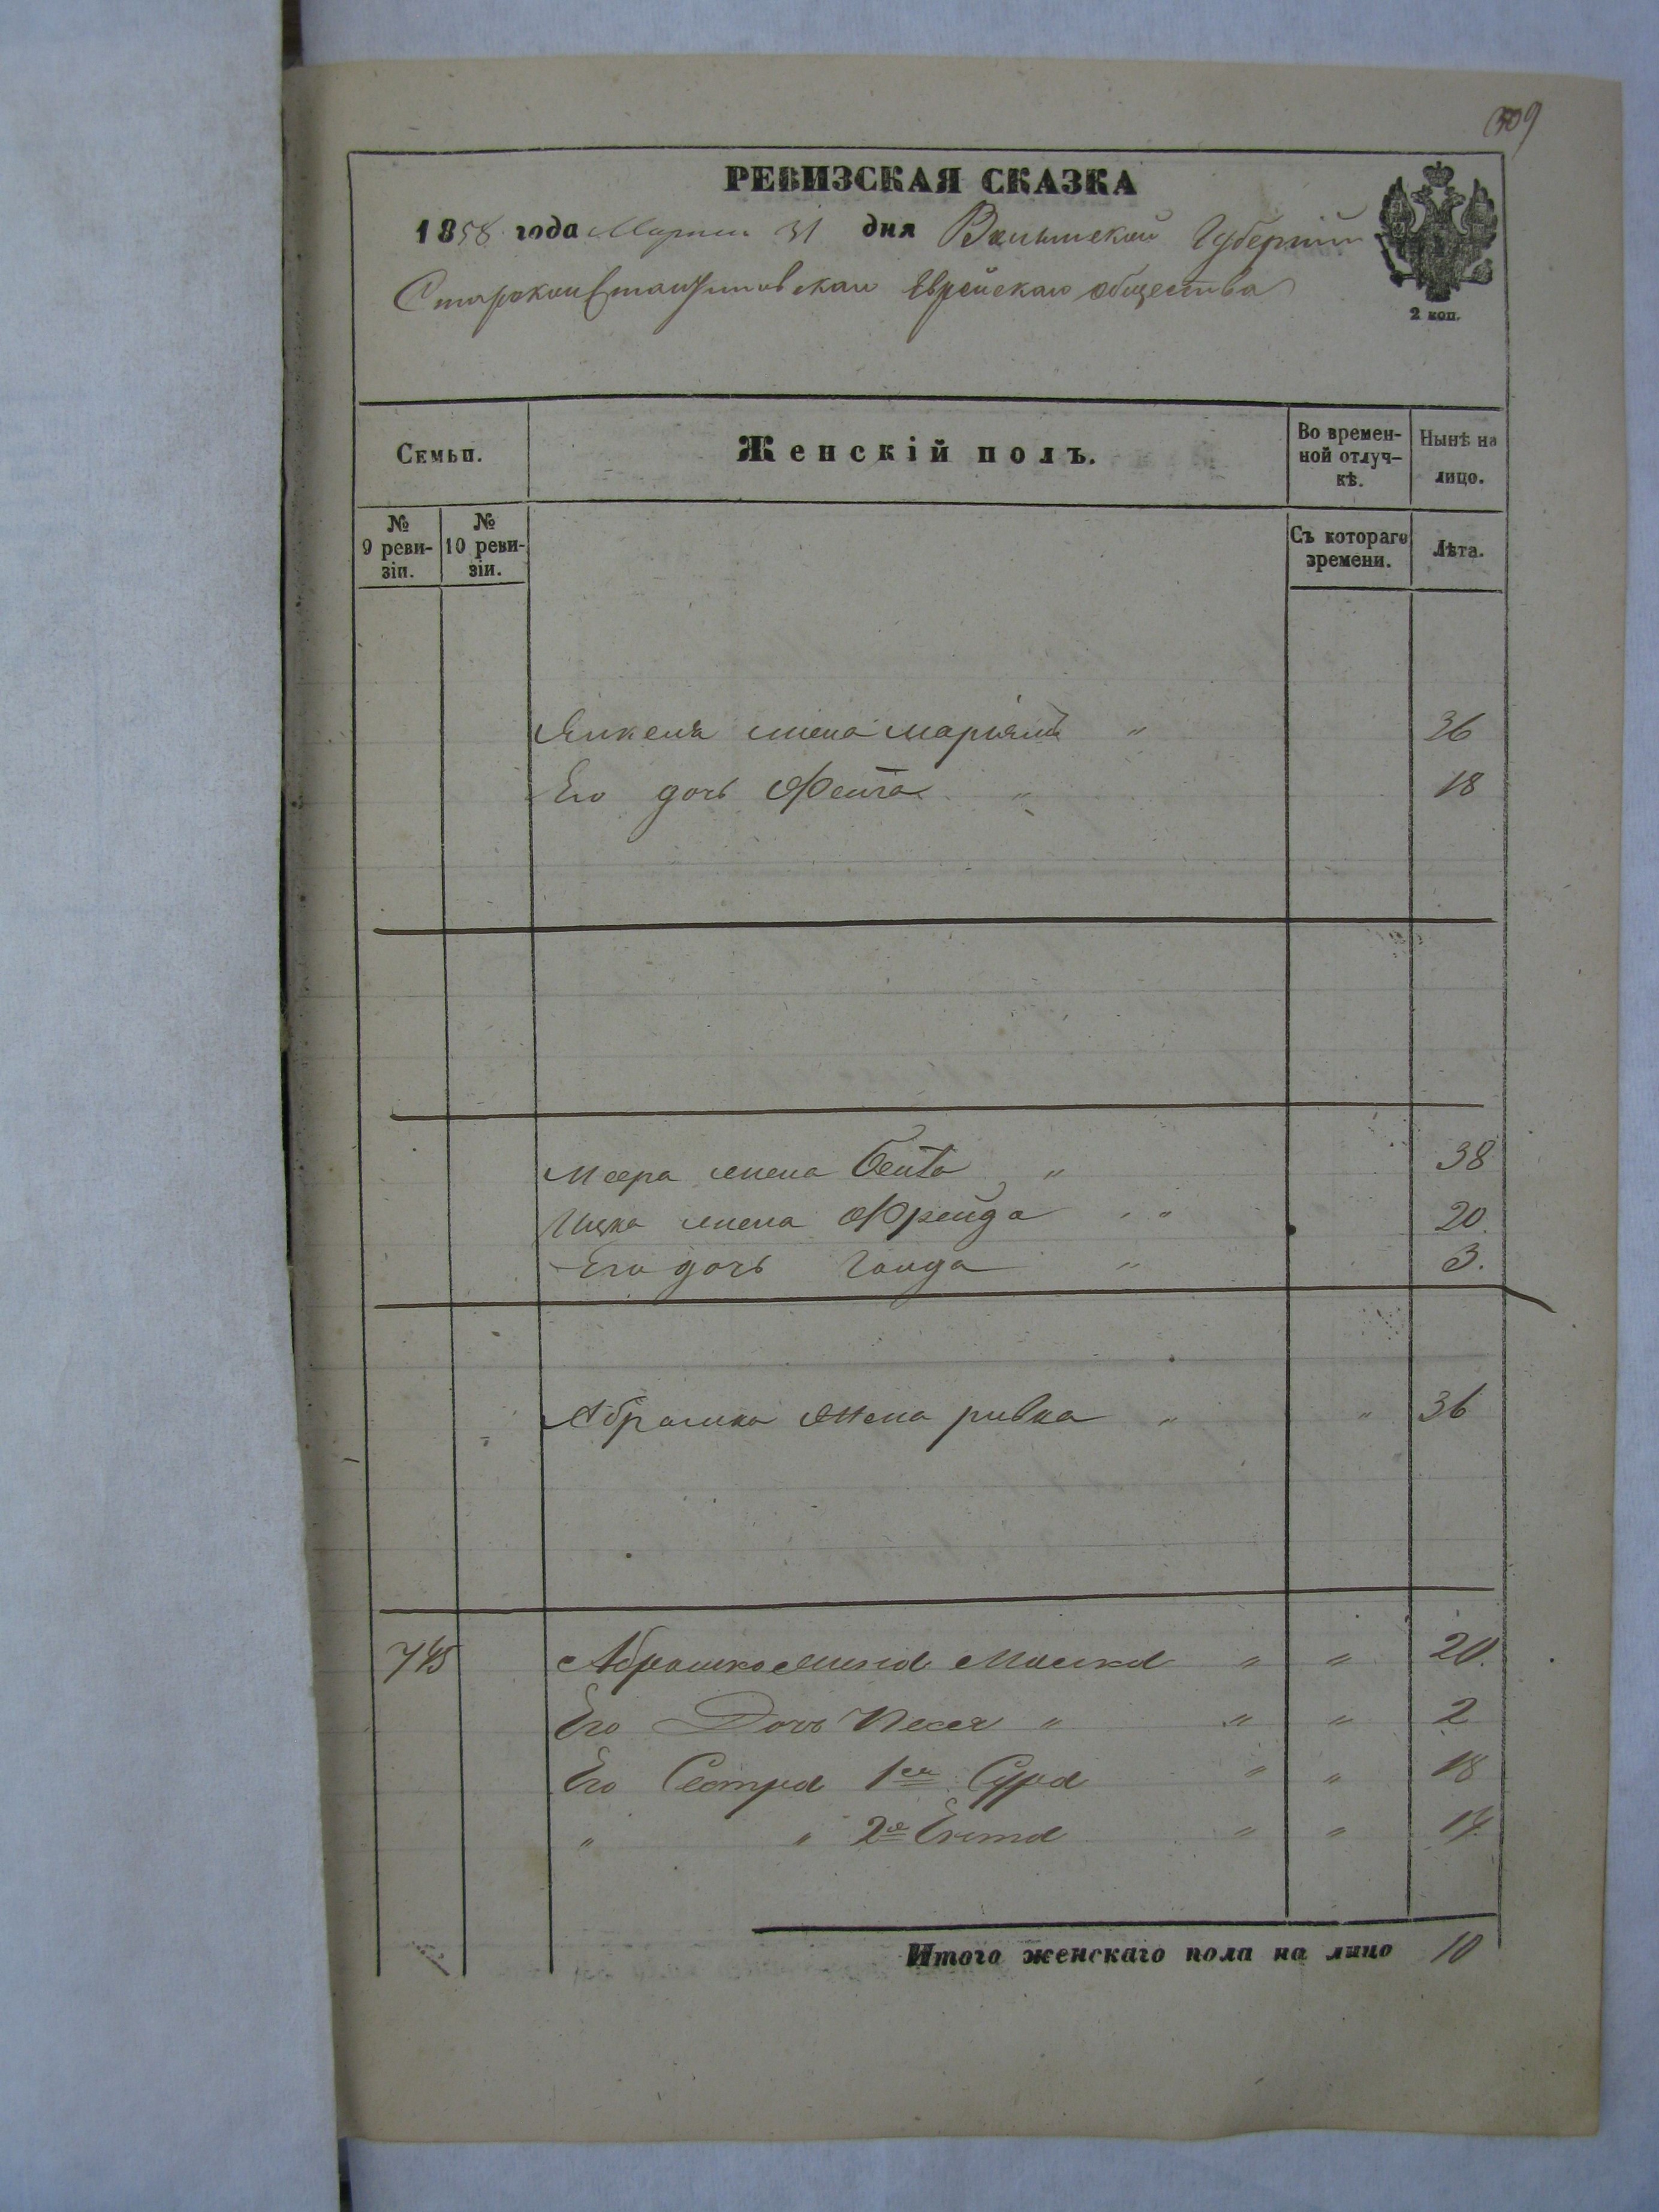 509
РЕВИЗСКАЯ СКАЗКА
1858 года Марта 31 дня Волынской Губерніи
Староконстантиновскаго Еврейскаго общества
2 коп.
Семьи.
Женскій полъ.
Во времен-
ной отлуч-
кѣ.
Нынѣ на
лицо.
№
9 реви-
зіи.
№
10 реви-
зіи.
Съ котораго
времени.
Лѣта.
Янкеля жена Марьямъ " 36
Его дочь Фейга " 18
Меера жена Бейла " 38
Ицка жена Фрейда " " 20.
Его дочь Голда " 3.
Абрамка жена ривка " " 36
745 Абрашко жена Маска " " 20.
Его Дочь Песя " " " 2
Его Сестра 1ая Сура " " 18
" " 2я " " 14.
Итого женскаго пола на лицо 10